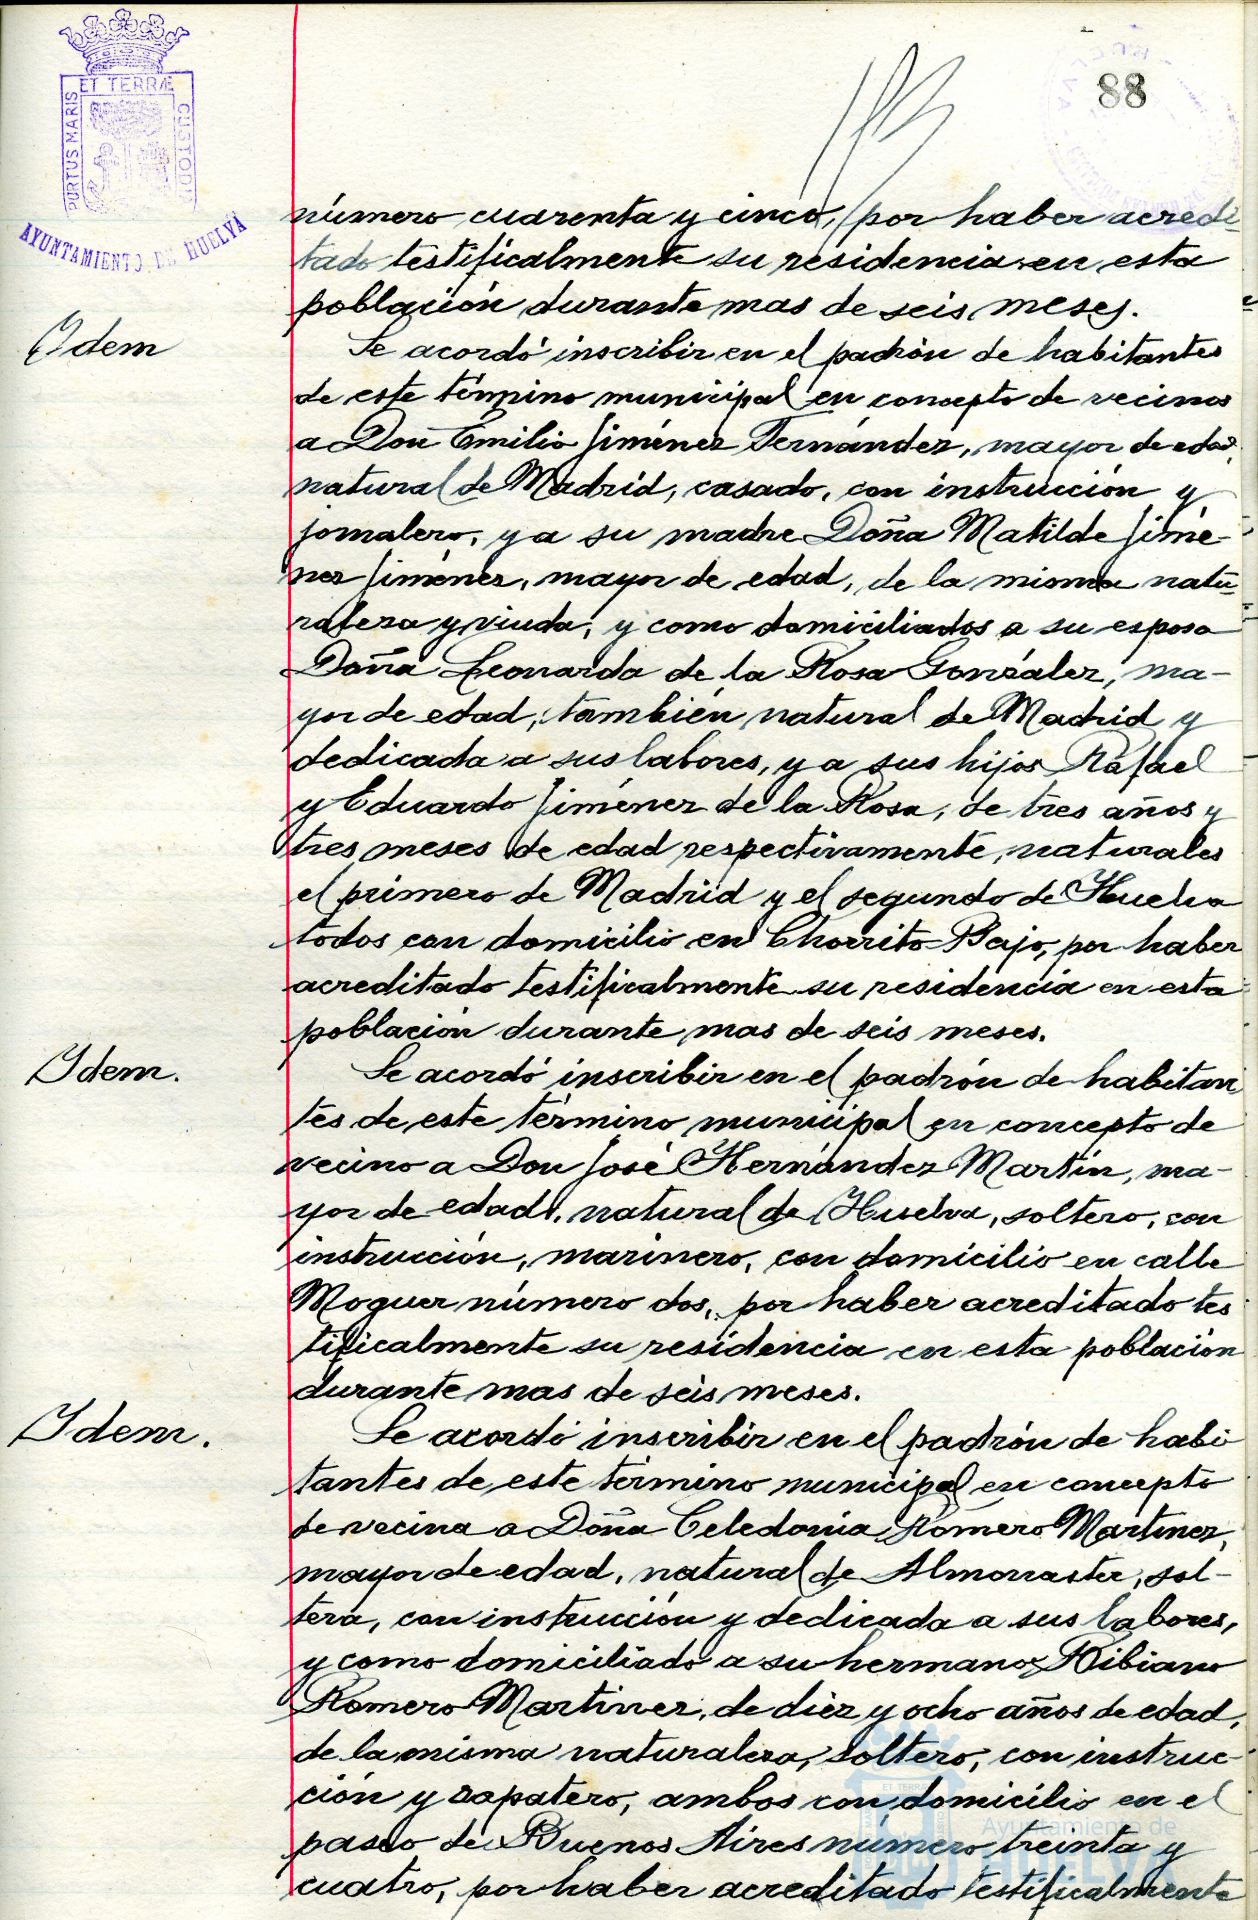 88
ET TERRÆ
PORTUS MARIS
CUSTODIA
AYUNTAMIENTO DE HUELVA
número cuarenta y cinco, por haber acredi-
tado testificalmente su residencia en esta
población durante mas de seis meses.
Idem
Se acordó inscribir en el padrón de habitantes
de este término municipal en concepto de vecinos
a Don Emilio Jiménez Fernández, mayor de edad,
natural de Madrid, casado, con instrucción y
jornalero, y a su madre Doña Matilde Jimé-
nez Jiménez, mayor de edad, de la misma natu-
raleza y viuda; y como domiciliados a su esposa
Doña Leonarda de la Rosa González, ma-
yor de edad, también natural de Madrid y
dedicada a sus labores, y a sus hijos Rafael
y Eduardo Jiménez de la Rosa, de tres años y
tres meses de edad respectivamente, naturales
el primero de Madrid y el segundo de Huelva
todos con domicilio en Chorrito Bajo, por haber
acreditado testificalmente su residencia en esta
población durante mas de seis meses.
Idem.
Se acordó inscribir en el padrón de habitan
tes de este término municipal en concepto de
vecino a Don José Hernández Martín, ma-
yor de edad, natural de Huelva, soltero, con
instrucción, marinero, con domicilio en calle
Moguer número dos, por haber acreditado tes
tificalmente su residencia en esta población
durante mas de seis meses.
Idem.
Se acordó inscribir en el padrón de habi
tantes de este término municipal en concepto
de vecina a Doña Celedonia Romero Martinez,
mayor de edad, natural de Almonaster, sol-
tera, con instrucción y dedicada a sus labores,
y como domiciliado a su hermano Bibiano
Romero Martinez, de diez y ocho años de edad,
de la misma naturaleza, soltero, con instruc-
ción y zapatero, ambos con domicilio en el
paseo de Buenos Aires número treinta y
cuatro, por haber acreditado testificalmente
Ayuntamiento de
HUELVA